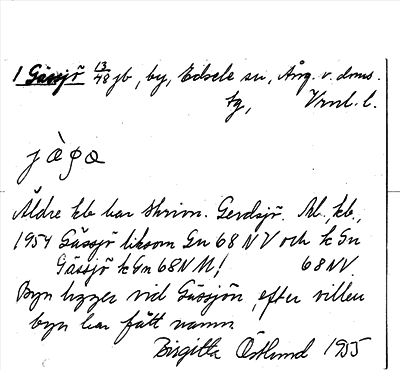 1 Gässjö 13/48 jb, by, Edsele sn, Ång. v. doms.
tg, Vrnl. l.
jæ̀ʂæ
Äldre kb har skrivn. Gerdsjö. Rb, kb.,
1954 Gässjö liksom Gn 68 NV och k Gn
Gässjö k Gn 68 NV M! 68 NV.
Byn ligger vid Gässjön, efter vilken
byn har fått namn
Birgitta Östlund 1955